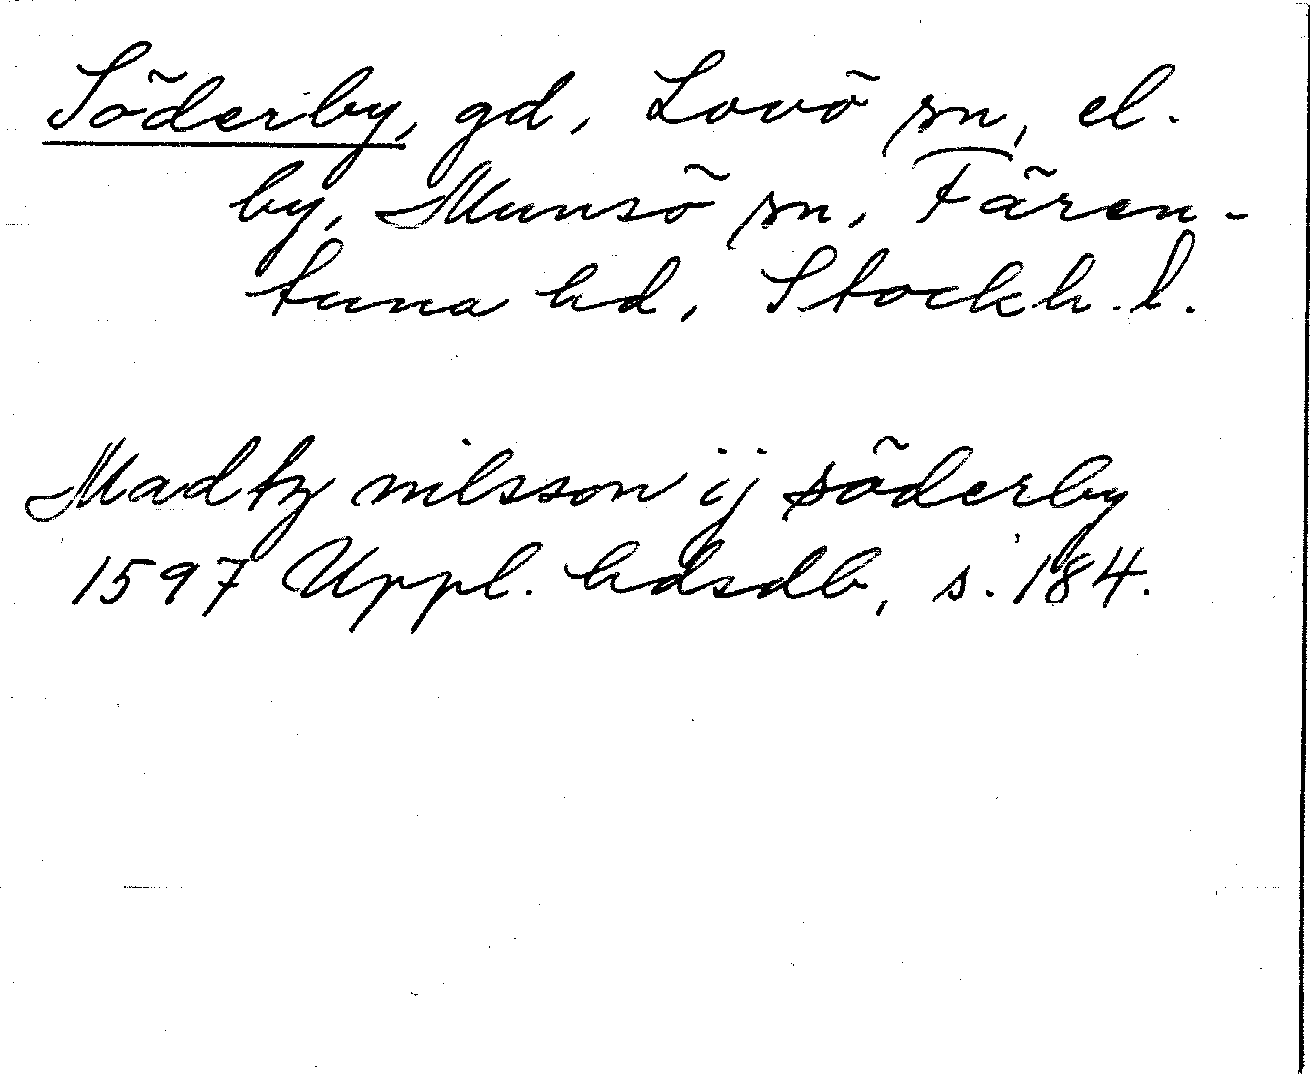 Söderby, gd, Lovö sn, el.
by, Munsö sn, Fären-
tuna hd, Stockh. l.
Madtz nilsson ij söderby
1597 Uppl. hdsdb, s. 184.